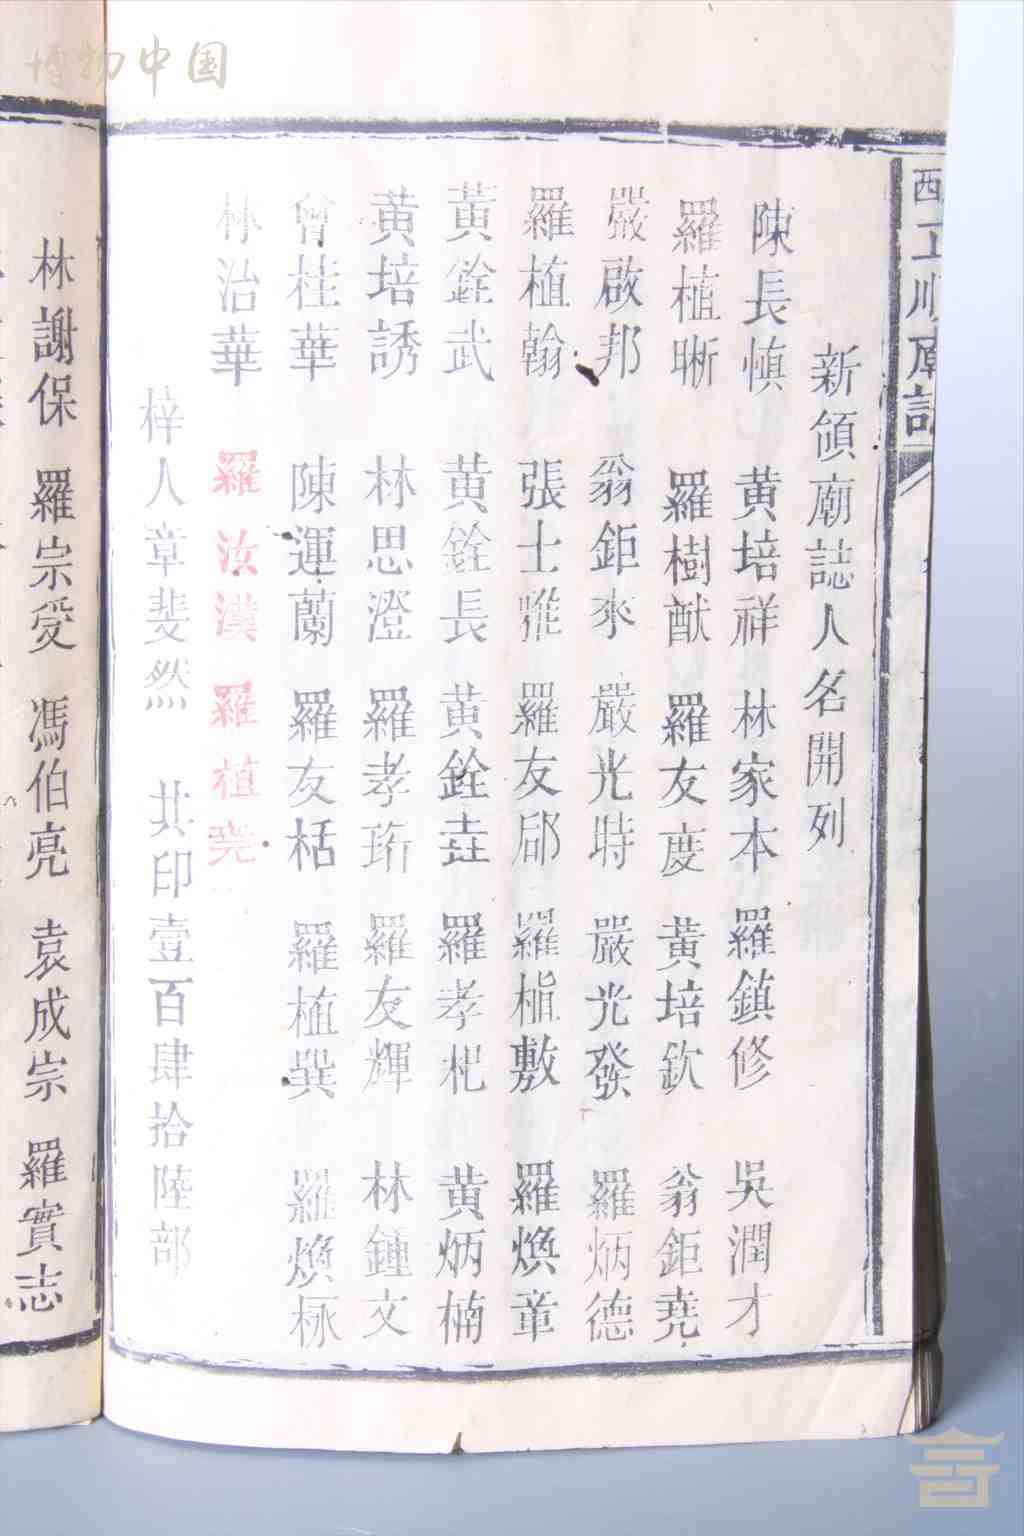 博物中国
新領廟誌人名開列
陳長慎 黃培祥 林家本 羅鎮修 吳潤才
羅植晰 羅樹猷 羅友度 黃培欽 翁鉅堯
嚴啟邦 翁鉅來 嚴光時 嚴光發 羅炳德
羅植翰 張士雅 羅友邵 羅植敷 羅煥章
黃銓武 黃銓長 黃銓垚 羅孝杞 黃炳楠
黃培誘 林思澄 羅孝珩 羅友輝 林鍾文
曾桂華 陳運蘭 羅友栝 羅植巽 羅煥
林治華 羅汝漢 羅植堯
梓人章斐然 共印壹百肆拾陸部
林謝保 羅宗受 馮伯亮 袁成宗 羅實志